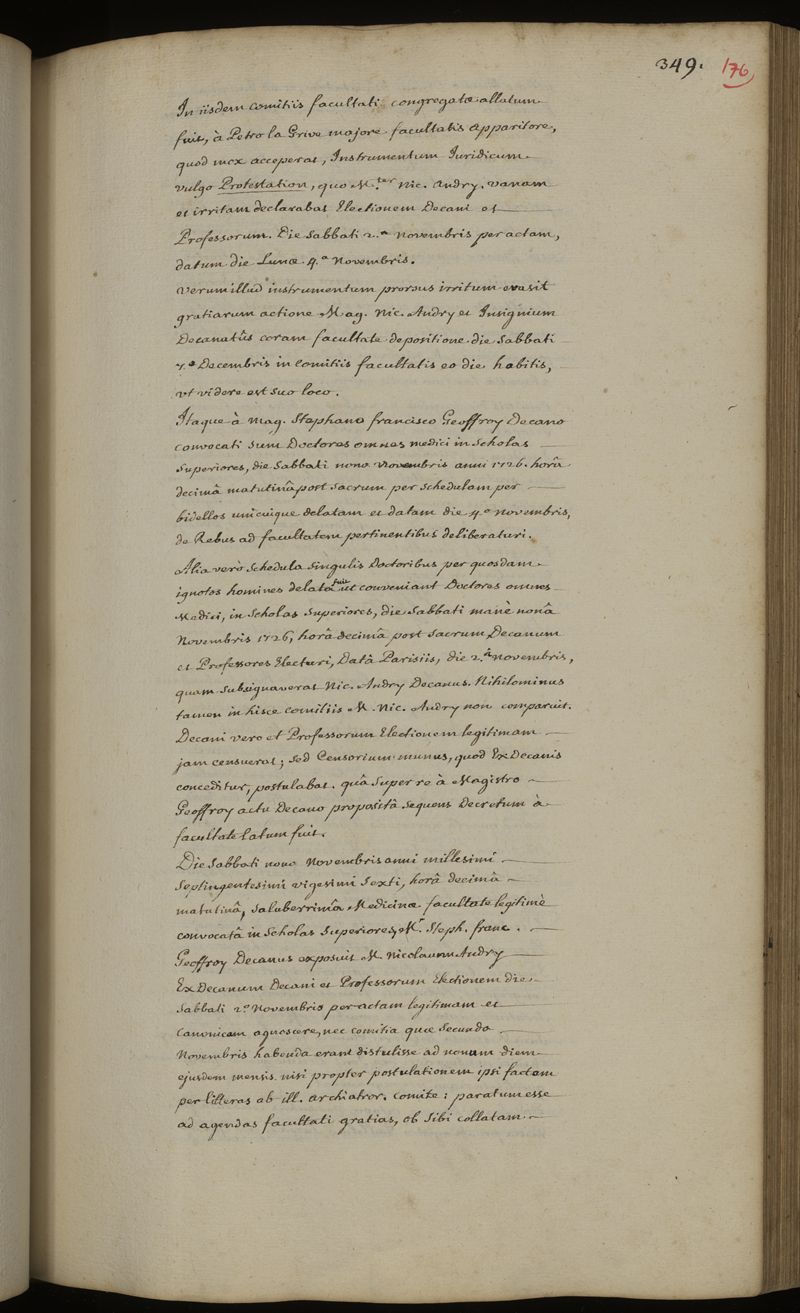 349. 176
In iisdem comitiis facultati congregatæ allatum
fuit, à Petro la Grive majore facultatis Apparitore,
quod mox acceperat, Instrumentum Juridicum
vulgo Protestation, quo M.ter Nic. Andry, vanam
et irritam declarabat Electionem Decani et
Professorum. Die Sabbati 2.a Novembris peractam,
datum die Lunæ 4.a Novembris.
Verum illud instrumentum prorsus irritum evasit
gratiarum actione Mag. Nic. Andry et Insignium
Decanatûs coram facultate depositione die Sabbati
7.a Decembris in Comitiis facultatis eo die habitis,
ut videre est suo loco.
Itaque à Mag. Stephano francisco Geoffroy Decano
convocati sunt Doctores omnes medici in Scholas
Superiores, die Sabbati nono Novembris anni 1726. horâ
decimâ matutinâ post Sacrum per Schedulam per
bidellos unicuique delatam et datam die 4.a Novembris,
de Rebus ad facultatem pertinentibus deliberaturi.
Alia verò Schedula singulis Doctoribus per quosdam
ignotos homines delata fuit ut conveniant Doctores omnes
Medici, in Scholas Superiores, die Sabbati manè nonâ
Novembris 1726, horâ decimâ post Sacrum Decanum
et Professores Electuri, Datâ Parisiis, die 2.a Novembris,
quam subsignaverat Nic. Andry Decanus. Nihilominus
tamen in hisce comitiis M. Nic. Andry non comparuit.
Decani vero et Professorum Electionem legitimam
jam censuerat; sed Censorium munus, quod ExDecanis
conceditur, postulabat. quâ super re à Magistro
Geoffroy actu Decano propositâ sequens Decretum à
facultate latum fuit.
Die Sabbati nono Novembris anni millesimi
Septingentesimi vigesimi Sexti, horâ decimâ
matutinâ, saluberrimâ Medicinæ facultate legitimè
convocatâ in Scholas Superiores, M.r Steph. franc.
Geoffroy Decanus exposuit M. Nicolaum Andry
ExDecanum Decani et Professorum Electionem die
Sabbati 2.a Novembris per-actam legitimam et
Canonicam agnoscere, nec comitia quæ Secundo
Novembris habenda erant distulisse ad nonam diem
ejusdem mensis nisi propter postulationem ipsi factam
per litteras ab ill. Archiatror. Comite: paratum esse
ad agendas facultati gratias, ob Sibi collatam